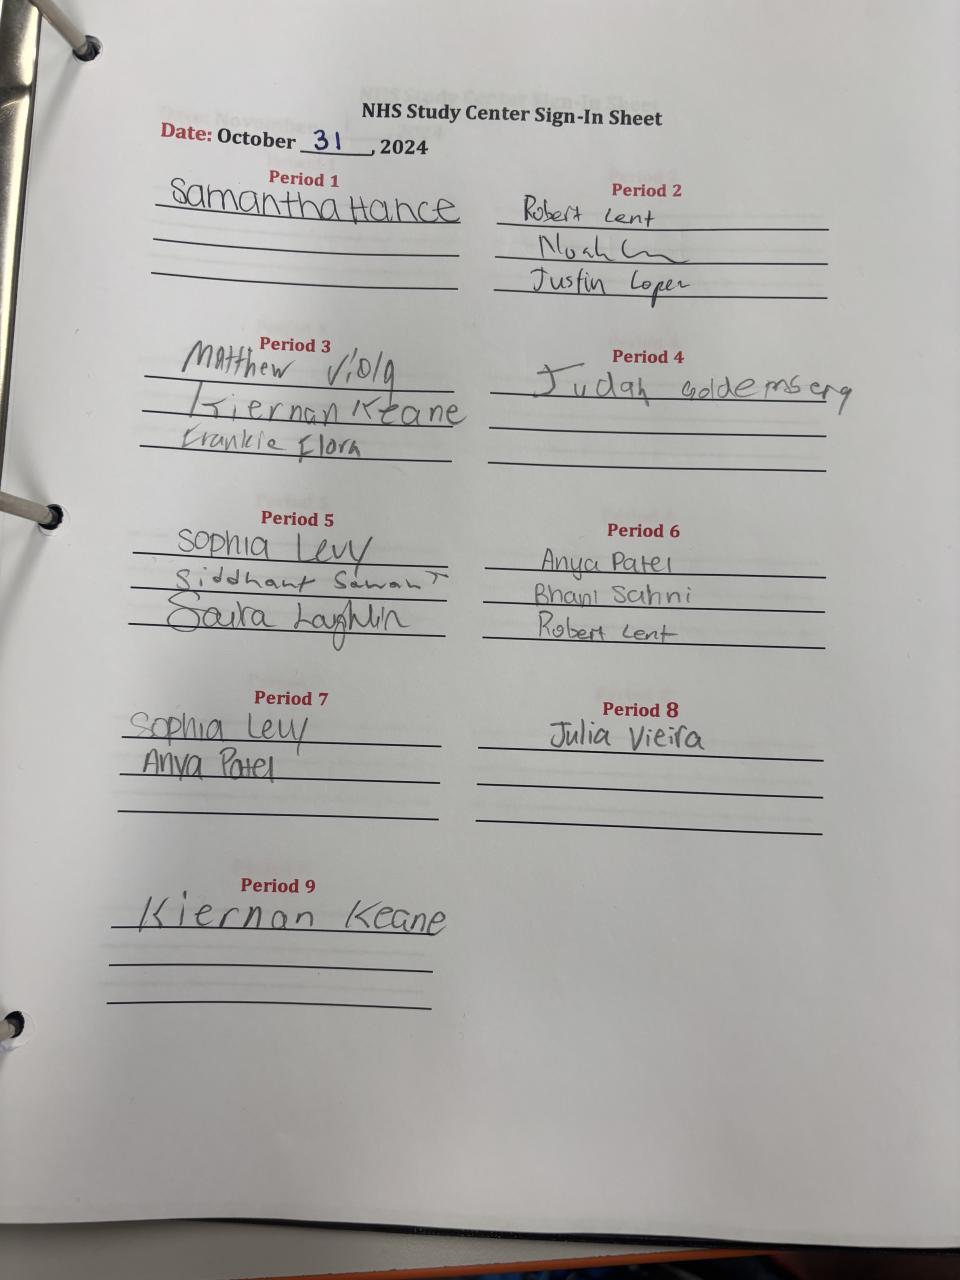 NHS Study Center Sign-In Sheet
Date: October 31, 2024
Period 1
Samantha Hance
Period 2
Robert Lent
Noah
Justin Loper
Period 3
Matthew Viola
Kiernan Keane
Frankie Flora
Period 4
Judah Goldemsberg
Period 5
Sophia Levy
Siddhant Sawant
Saira Laghlin
Period 6
Anya Patel
Bhani Sahni
Robert Lent
Period 7
Sophia Levy
Anya Patel
Period 8
Julia Vieira
Period 9
Kiernan Keane